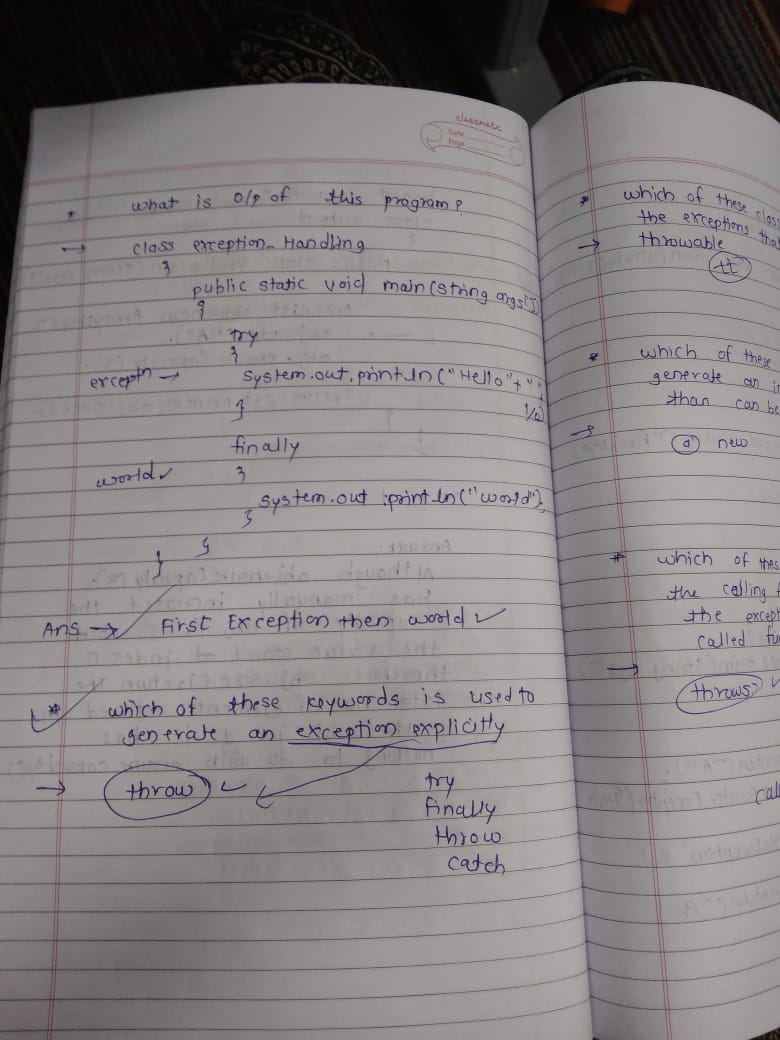 classmate
Date
Page
* what is o/p of this program?
→ class exception_Handling
{
public static void main(string args[])
{
try
{
exceptn → system.out.println("Hello"+" "+
1/0)
}
finally
world ✓ {
system.out.println("world");
}
}
}
Ans → First Exception then world ✓
* which of these keywords is used to
generate an exception explicitly
→ throw ✓
try
finally
throw
catch
* which of these clas
the exceptions tha
→ throwable
* which of these
generate an in
than can be
→ a new
* which of thes
the calling f
the except
called fun
→ throws ✓
call